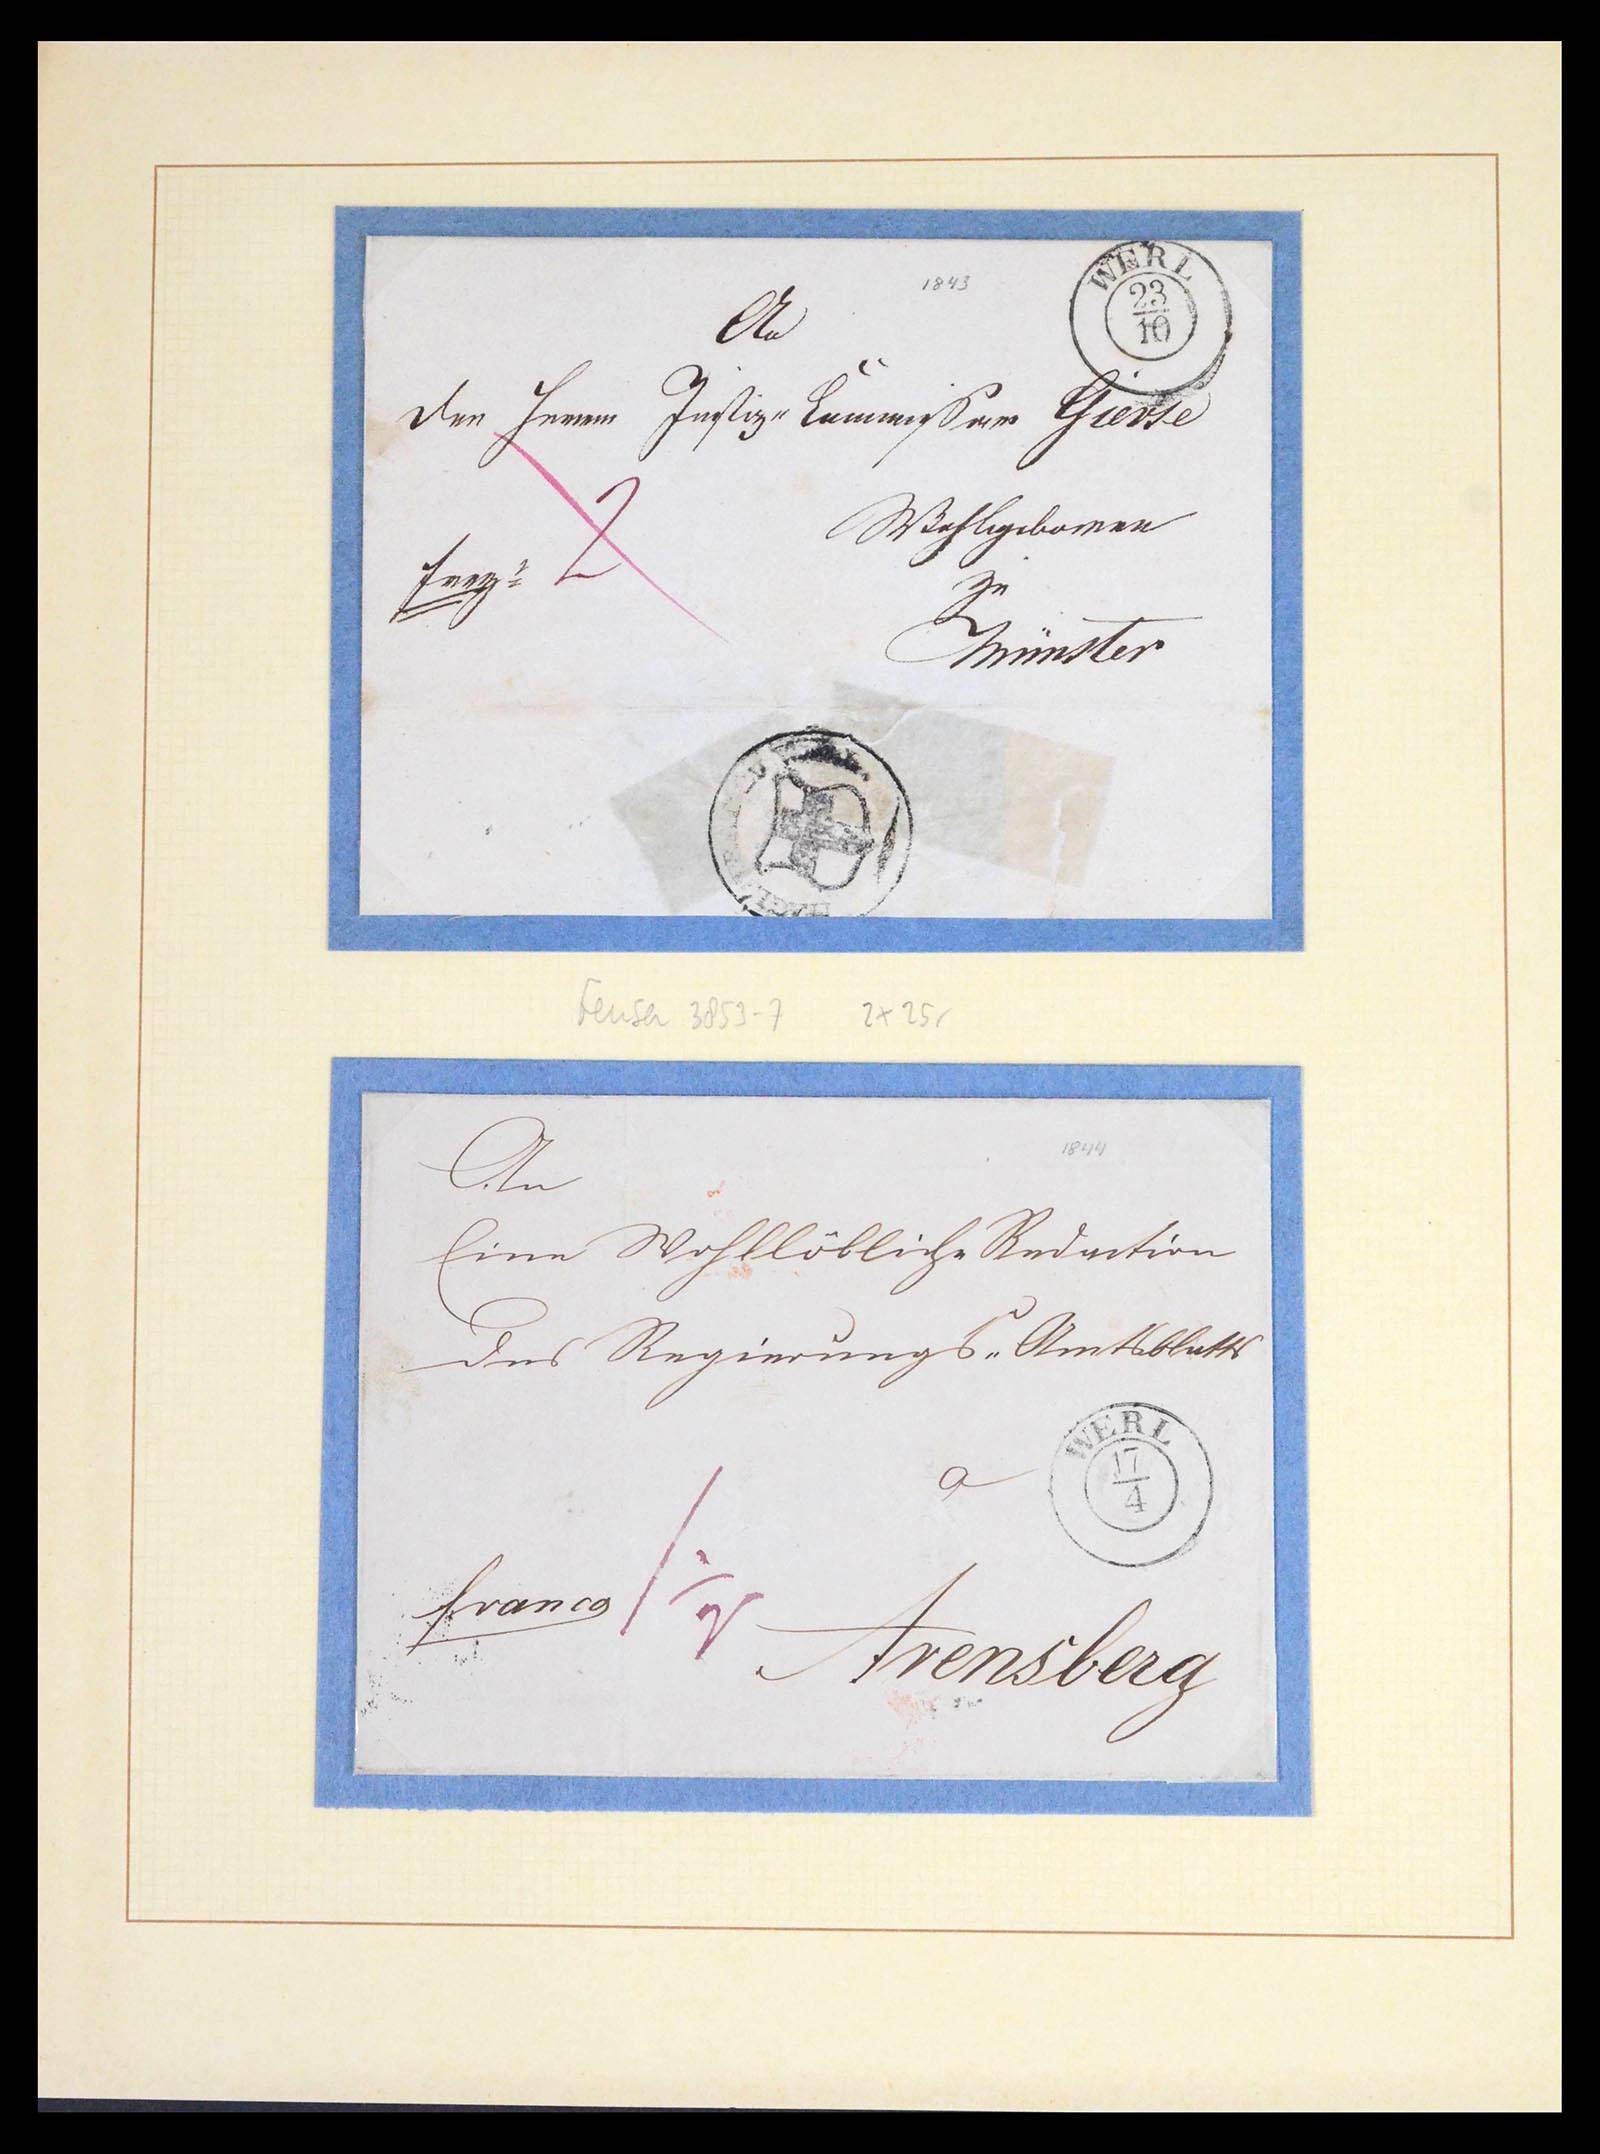 1843
WERL
23
10
An
den Herrn Justiz-Commissar Gierse
Wohlgeboren
2
zu
Münster
Feuser 3853-7 2x25,-
1844
An
Eine Wohllöbliche Redaction
des Regierungs-Amtsblatts
WERL
17
4
a
franco 1 1/2
Arensberg